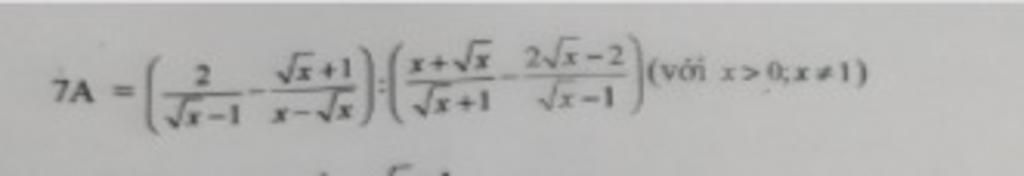 7A = (2/(√x−1) − (√x+1)/(x−√x)) : ((x+√x)/(√x+1) − (2√x−2)/(√x−1)) (với x > 0; x ≠ 1)